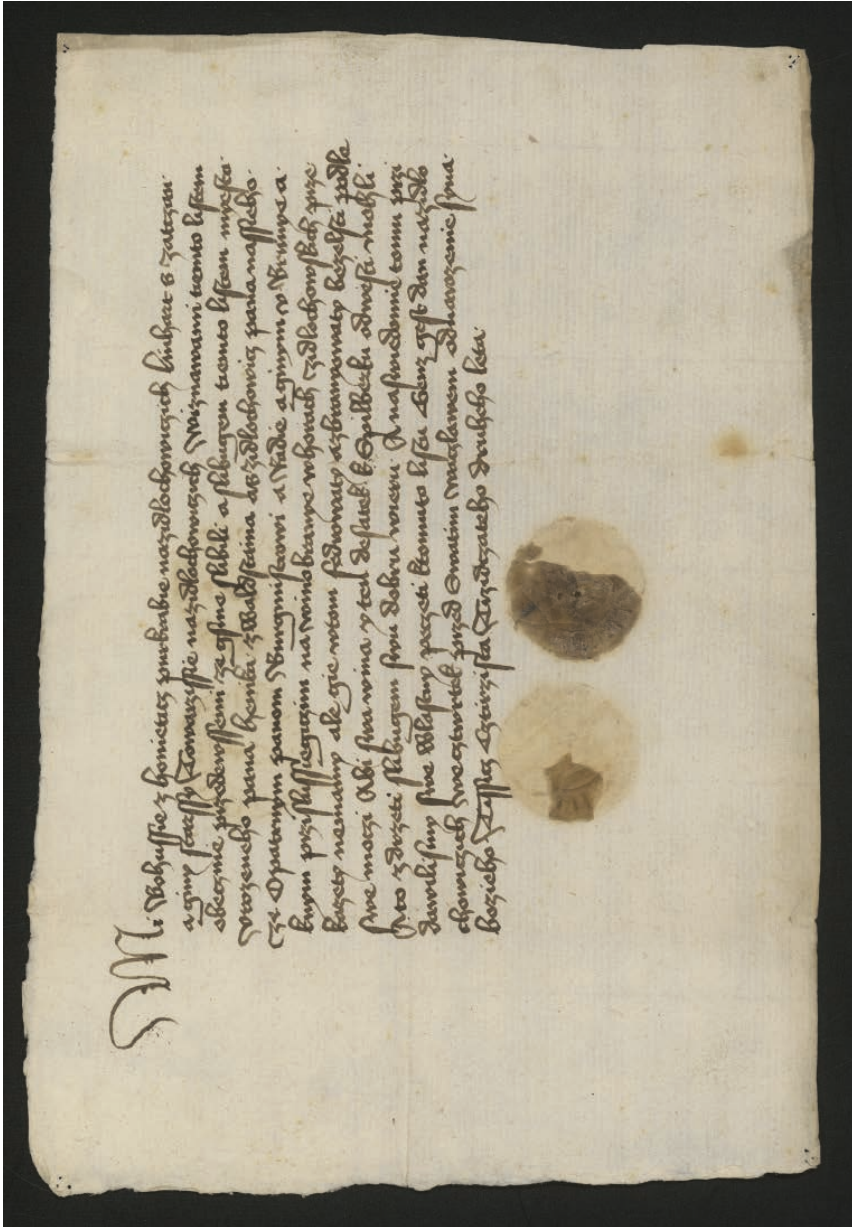 Mi Bohussie z konieticz purkrabie nazidlochowiczich linhart
a giny starssy Towarzissie nazidlochowiczich Wiznawami tiemto listem
obecznie przedewssemi ze gsme slibili a slibugem tiemto listem miesto
Vrozeneho pana hynka z Waldsteina a na zidlochowicz pana nassieho
Opatrnym panom Burgmistrowi a Radie a ginym v Brnnye a
knym przislussiegiczim na winobranye whorach zidlochowskich prze
kazety nemamy ale gie wtom fedrowaty a zbranyowaty bezelsti podle
swe moczi Abi swa wina y ten desatek k Spilberku odwesti mohli
A to zdrzeti slibugem swu dobru wieru A naswiedomie tomu przi
dawilismy swe Wlastny peczeti ktomuto listu Genz gest dan nazidlo
chowiczich we cztwrtek przed Swatim waczlawem od narozenie syna
bozieho Tissicz Cztirzista Trzidczateho druheho leta